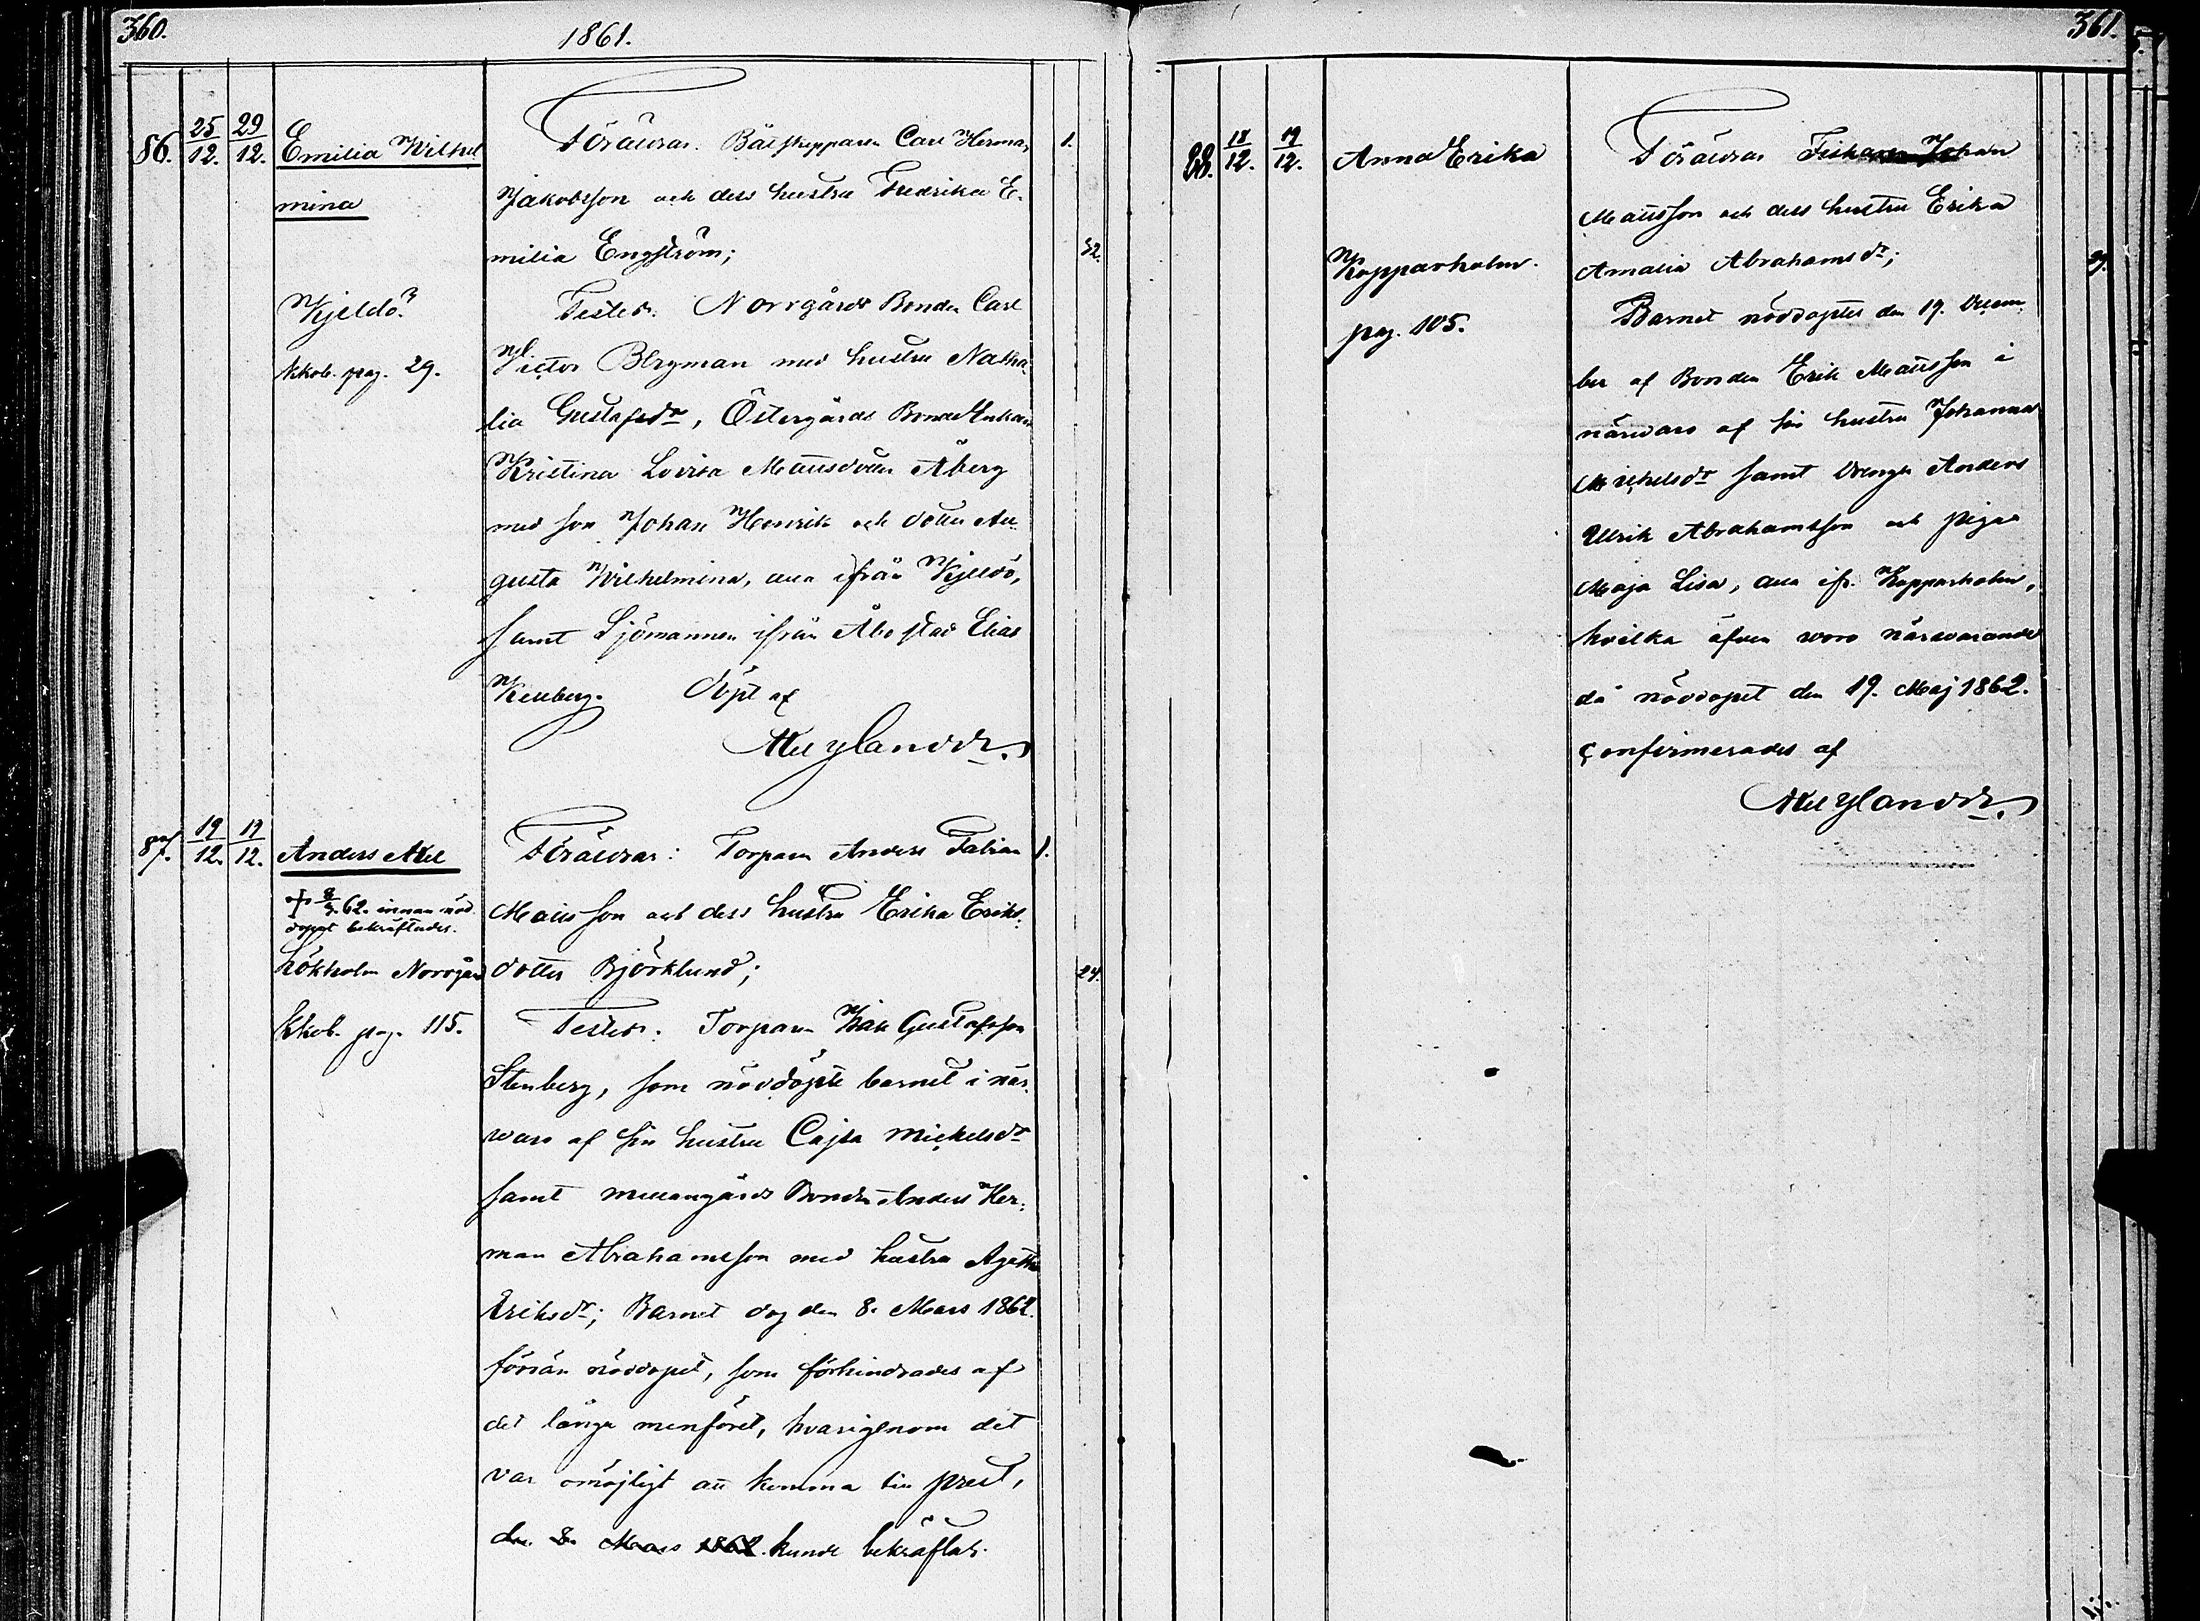 360.
1861.
86. 25/12. 29/12. Emilia Wilhel
mina
Kjeldö
kkob. pag. 29.
Föräldrar. Båtskepparen Carl Herman
Jakobsson och dess hustru Fredrika E-
milia Engström;
1.
32.
Testes: Norrgårds Bonden Carl
Victor Bergman med hustru Natha-
lia Gustafsdr, Östergårds Bonde Enkan
Kristina Lovisa Mattsdotter Åberg
med son Johan Henrik och dotter Au-
gusta Wilhelmina, alla ifrån Kjeldö,
samt Sjömannen ifrån Åbo stad Elias
Kellberg. Döpt af
Axel Ylander.
87. 19/12. 19/12. Anders Axel
† 8/3.62. innan nöd
dopet bekräftades.
Hökholm Norrgård
kkob. pag. 115.
Föräldrar: Torparen Anders Fabian
Mattsson och dess hustru Erika Eriks-
dotter Björklund;
1.
24.
Testes: Torparen Isak Gustafsson
Stenberg, som nöddöpte barnet i när-
varo af sin hustru Cajsa Michelsdr
samt mellangårds Bonden Anders Her-
man Abrahamsson med hustru Agatha
Eriksdr; Barnet dog den 8. Mars 1862.
förrän nöddopet, som förhindrades af
det långa menföret, hvarigenom det
var omöjligt att komma till prest,
den 8. Mars 1862. kunde bekräftas.
361.
88. 18/12. 19/12. Anna Erika
Kopparholm.
pag. 105.
Föräldrar Fiskaren Johan
Mattsson och dess hustru Erika
Amalia Abrahamsdr;
29.
Barnet nöddöptes den 19. Decem-
ber af Bonden Erik Mattsson i
närvaro af sin hustru Johanna
Michelsdr samt Drengen Anders
Ulrik Abrahamsson och pigan
Maja Lisa, alla ifr. Kopparholm,
hvilka äfven voro närvarande
då nöddopet den 19. Maj 1862.
confirmerades af
Axel Ylander.